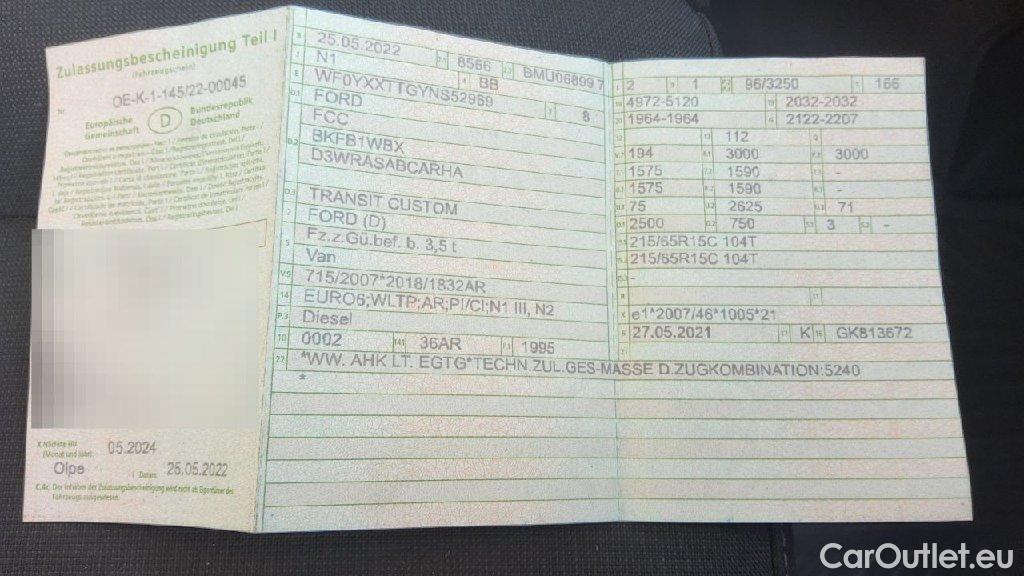 Zulassungsbescheinigung Teil I
(Fahrzeugschein)
Nr. OE-K-1-145/22-00045
Europäische Gemeinschaft D Bundesrepublik Deutschland
X Nächste HU (Monat und Jahr) 05.2024
Olpe I Datum: 25.05.2022
C.4c Der Inhaber der Zulassungsbescheinigung wird nicht als Eigentümer des
Fahrzeugs ausgewiesen.
B 25.05.2022 2.1 8566 2.2 BMU06899 7
J N1 4 BB
E WF0YXXTTGYNS52969 3 8
D.1 FORD
FCC
D.2 BKFB1WBX
D3WRASABCARHA
D.3 TRANSIT CUSTOM
2 FORD (D)
5 Fz.z.Gü.bef. b. 3,5 t
Van
V.9 715/2007*2018/1832AR
14 EURO6;WLTP;AR;PI/CI;N1 III, N2
P.3 Diesel
10 0002 14.1 36AR P.1 1995
22 *WW. AHK LT. EGTG*TECHN.ZUL.GES-MASSE D.ZUGKOMBINATION:5240
*
L 2 9 1 P.2 96/3250 T 166
18 4972-5120 19 2032-2032
20 1964-1964 G 2122-2207
12 13 112 Q
V.7 194 F.1 3000 F.2 3000
7.1 1575 7.2 1590 7.3 -
8.1 1575 8.2 1590 8.3 -
U.1 75 U.2 2625 U.3 71
O.1 2500 O.2 750 S.1 3 S.2 -
15.1 215/65R15C 104T
15.2 215/65R15C 104T
15.3 -
R 11
K e1*2007/46*1005*21
6 27.05.2021 17 K 16 GK813672
21
CarOutlet.eu